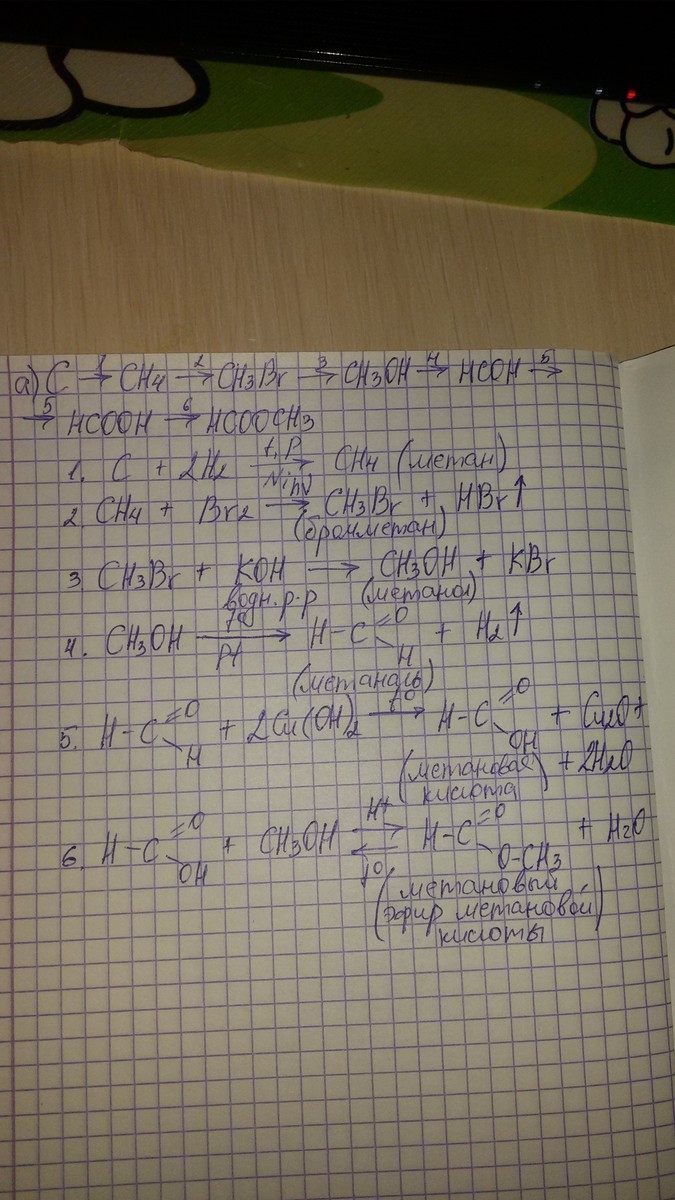 а) C 1→ CH4 2→ CH3Br 3→ CH3OH 4→ HCOH 5→
5→ HCOOH 6→ HCOOCH3
t, P
1. C + 2H2 → CH4 (метан)
Ni
hν
2. CH4 + Br2 → CH3Br + HBr↑
(бромметан)
3. CH3Br + KOH → CH3OH + KBr
водн. р-р (метанол)
4. CH3OH → H-C =O H + H2↑
Pt
(метаналь)
t°
5. H-C =O H + 2Cu(OH)2 → H-C =O OH + Cu2O +
(метановая + 2H2O
кислота)
H+
6. H-C =O OH + CH3OH ⇄ H-C =O O-CH3 + H2O
t°
(метановый
эфир метановой
кислоты)